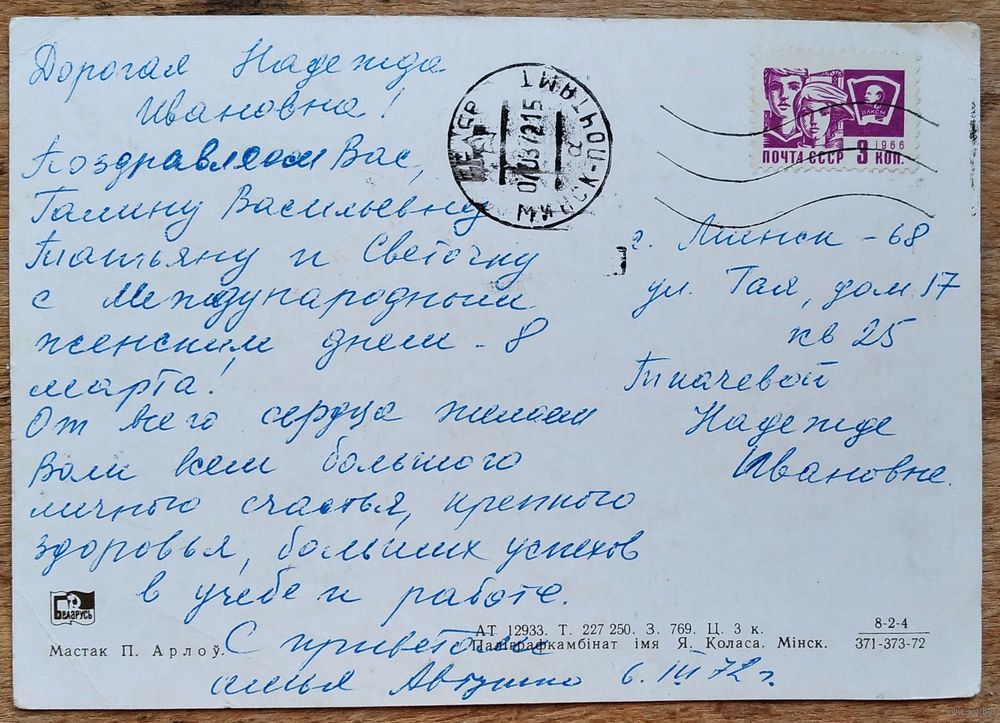 Дорогая Надежда
Ивановна!
Поздравляем Вас,
Галину Васильевну
Татьяну и Светочку
с Международным
женским днем - 8
марта!
От всего сердца желаем
Вам всем большого
личного счастья, крепкого
здоровья, больших успехов
в учебе и работе.
С приветом
семья 6.III 72 г.
МИНСК-ПОЧТАМТ
07 03 72 15
ВЛКСМ
1966
ПОЧТА СССР 3 КОП.
г. Минск - 68
ул. Гая, дом 17
кв 25
Ткачевой
Надежде
Ивановне.
БЕЛАРУСЬ
Мастак П. Арлоў.
АТ 12933. Т. 227 250. З. 769. Ц. 3 к.
Паліграфкамбінат імя Я. Коласа. Мінск.
8-2-4
371-373-72